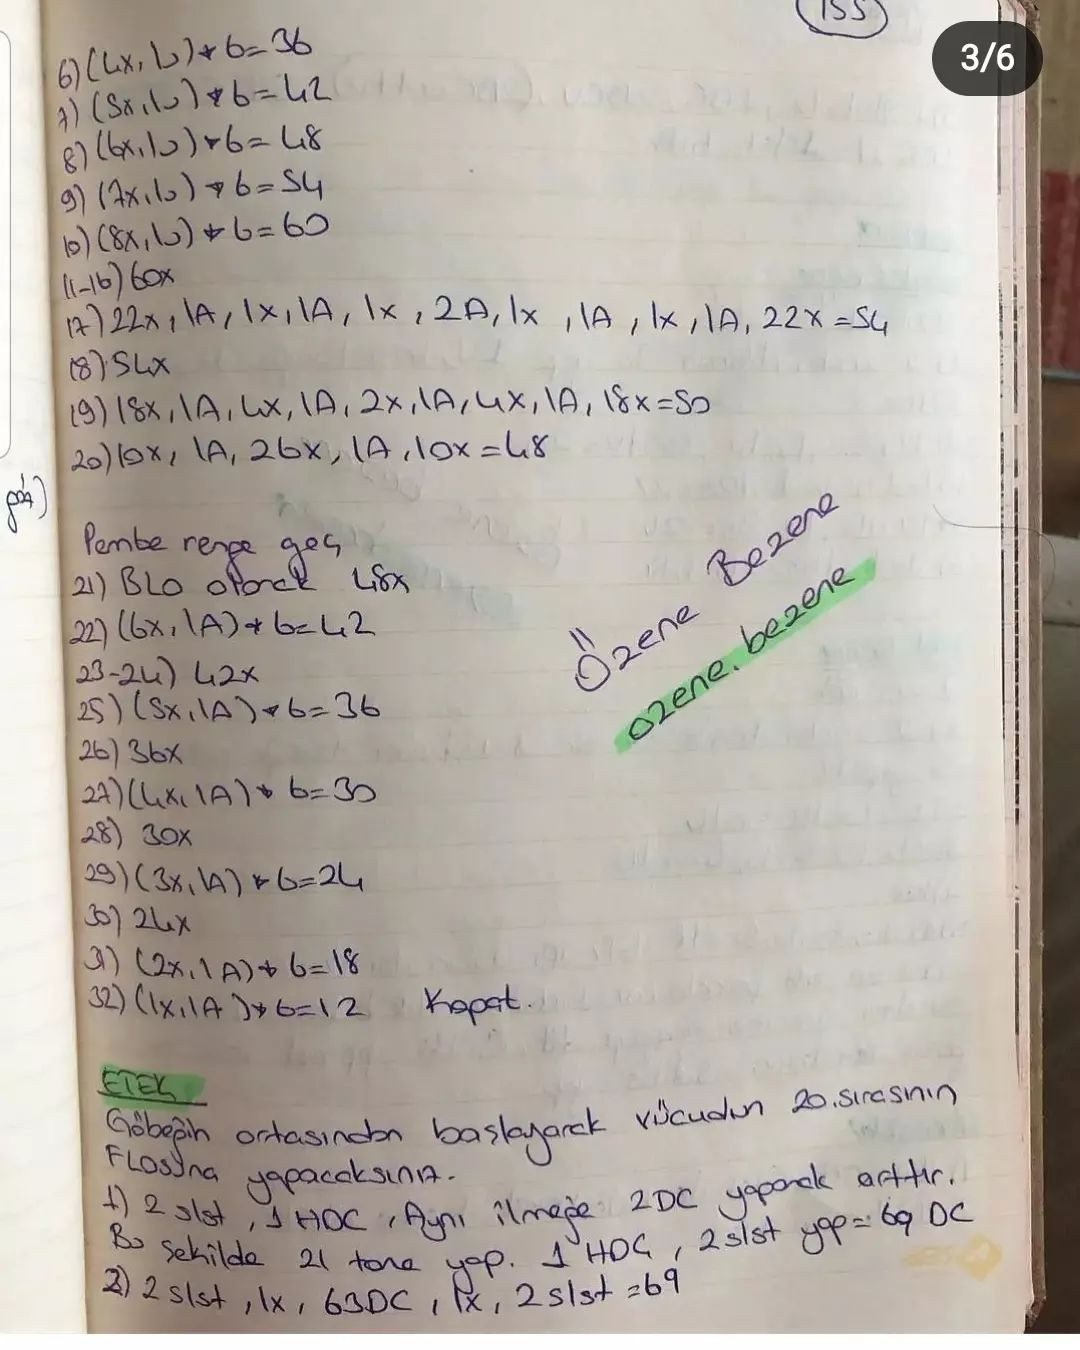 155
3/6
6) (4x, 1v) * 6 = 36
7) (5x, 1v) * 6 = 42
8) (6x, 1v) * 6 = 48
9) (7x, 1v) * 6 = 54
10) (8x, 1v) * 6 = 60
11-16) 60x
17) 22x, 1A, 1x, 1A, 1x, 2A, 1x, 1A, 1x, 1A, 22x = 54
18) 54x
19) 18x, 1A, 4x, 1A, 2x, 1A, 4x, 1A, 18x = 50
20) 10x, 1A, 26x, 1A, 10x = 48
Pembe renge geç
21) BLO olarak 48x
22) (6x, 1A) * 6 = 42
23-24) 42x
25) (5x, 1A) * 6 = 36
26) 36x
27) (4x, 1A) * 6 = 30
28) 30x
29) (3x, 1A) * 6 = 24
30) 24x
31) (2x, 1A) * 6 = 18
32) (1x, 1A) * 6 = 12 Kapat.
Özene Bezene
ozene.bezene
ETEK
Göbeğin ortasından başlayarak vücudun 20.sırasının
FLOSUna yapacaksınız.
1) 2 slst, 1 HDC, Aynı ilmeğe 2DC yaparak arttır.
Bu şekilde 21 tane yap. 1 HDC, 2 slst yap = 69 DC
2) 2 slst, 1x, 63DC, 1x, 2 slst = 69